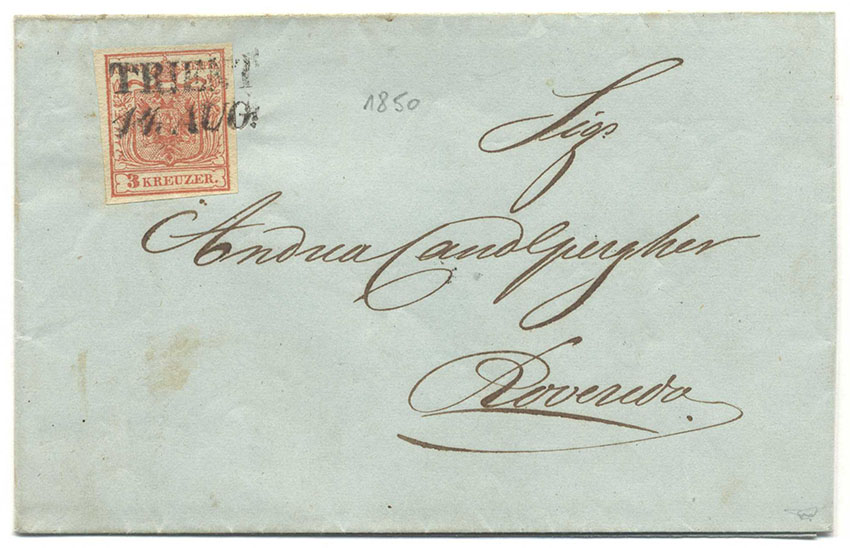 TRIENT
14. AUG:
3 KREUZER.
1850
Sigr
Andrea Candelpergher
Roveredo